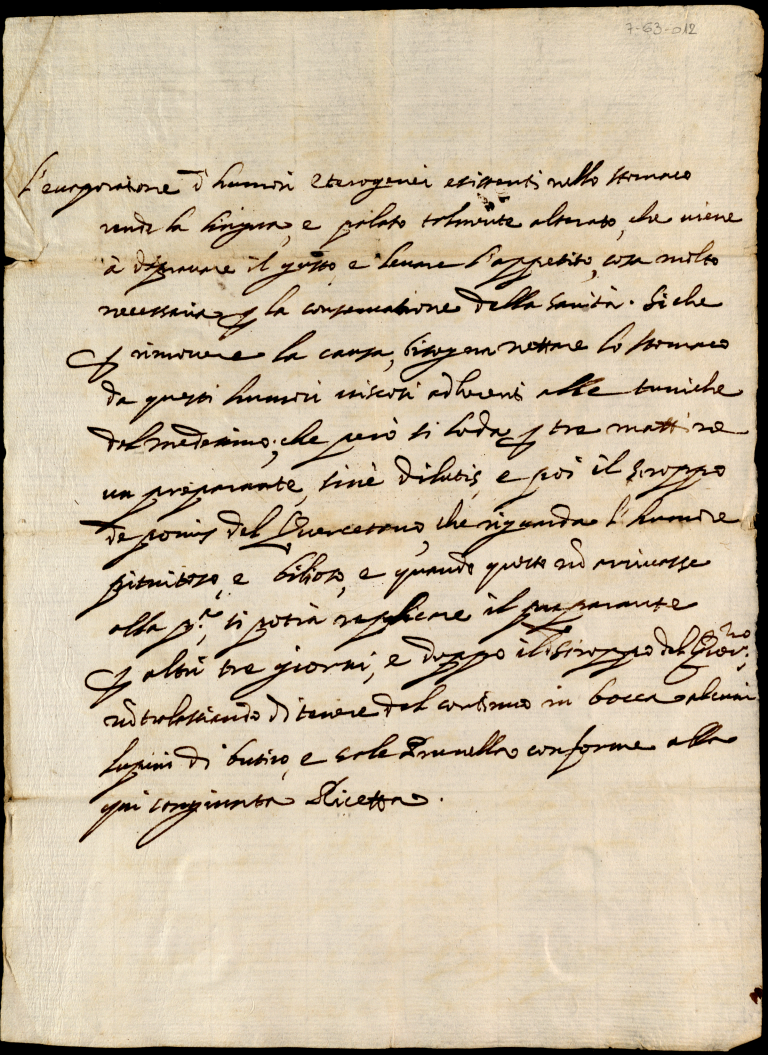 7-63-012
L'euaporatione d'humori eterogenei esistenti nello stomaco
rende la lingua, e palato talmente alterato, che uiene
à deprauare il gusto e leuare l'appetito, cosa molto
necessaria ꝑ la conseruatione della sanità. Si che
ꝑ rimouere la causa, bisogna nettare lo stomaco
da questi humori uiscosi adherenti alle tuniche
del medesimo; che però si loda ꝑ tre mattine
un preparante, sine dilutis, e poi il siroppo
de pomis del Quercetano, che riguarda l'humore
pituitoso, e bilioso, e quando questo nō arriuasse
alla p.ª, si potrà replicare il preparante
ꝑ altri tre giorni, e doppo il siroppo del
nō tralasciando di tenere del continuo in bocca alcuni
lupini di butiro, e sale Prunella conforme alla
qui congiunta Ricetta.